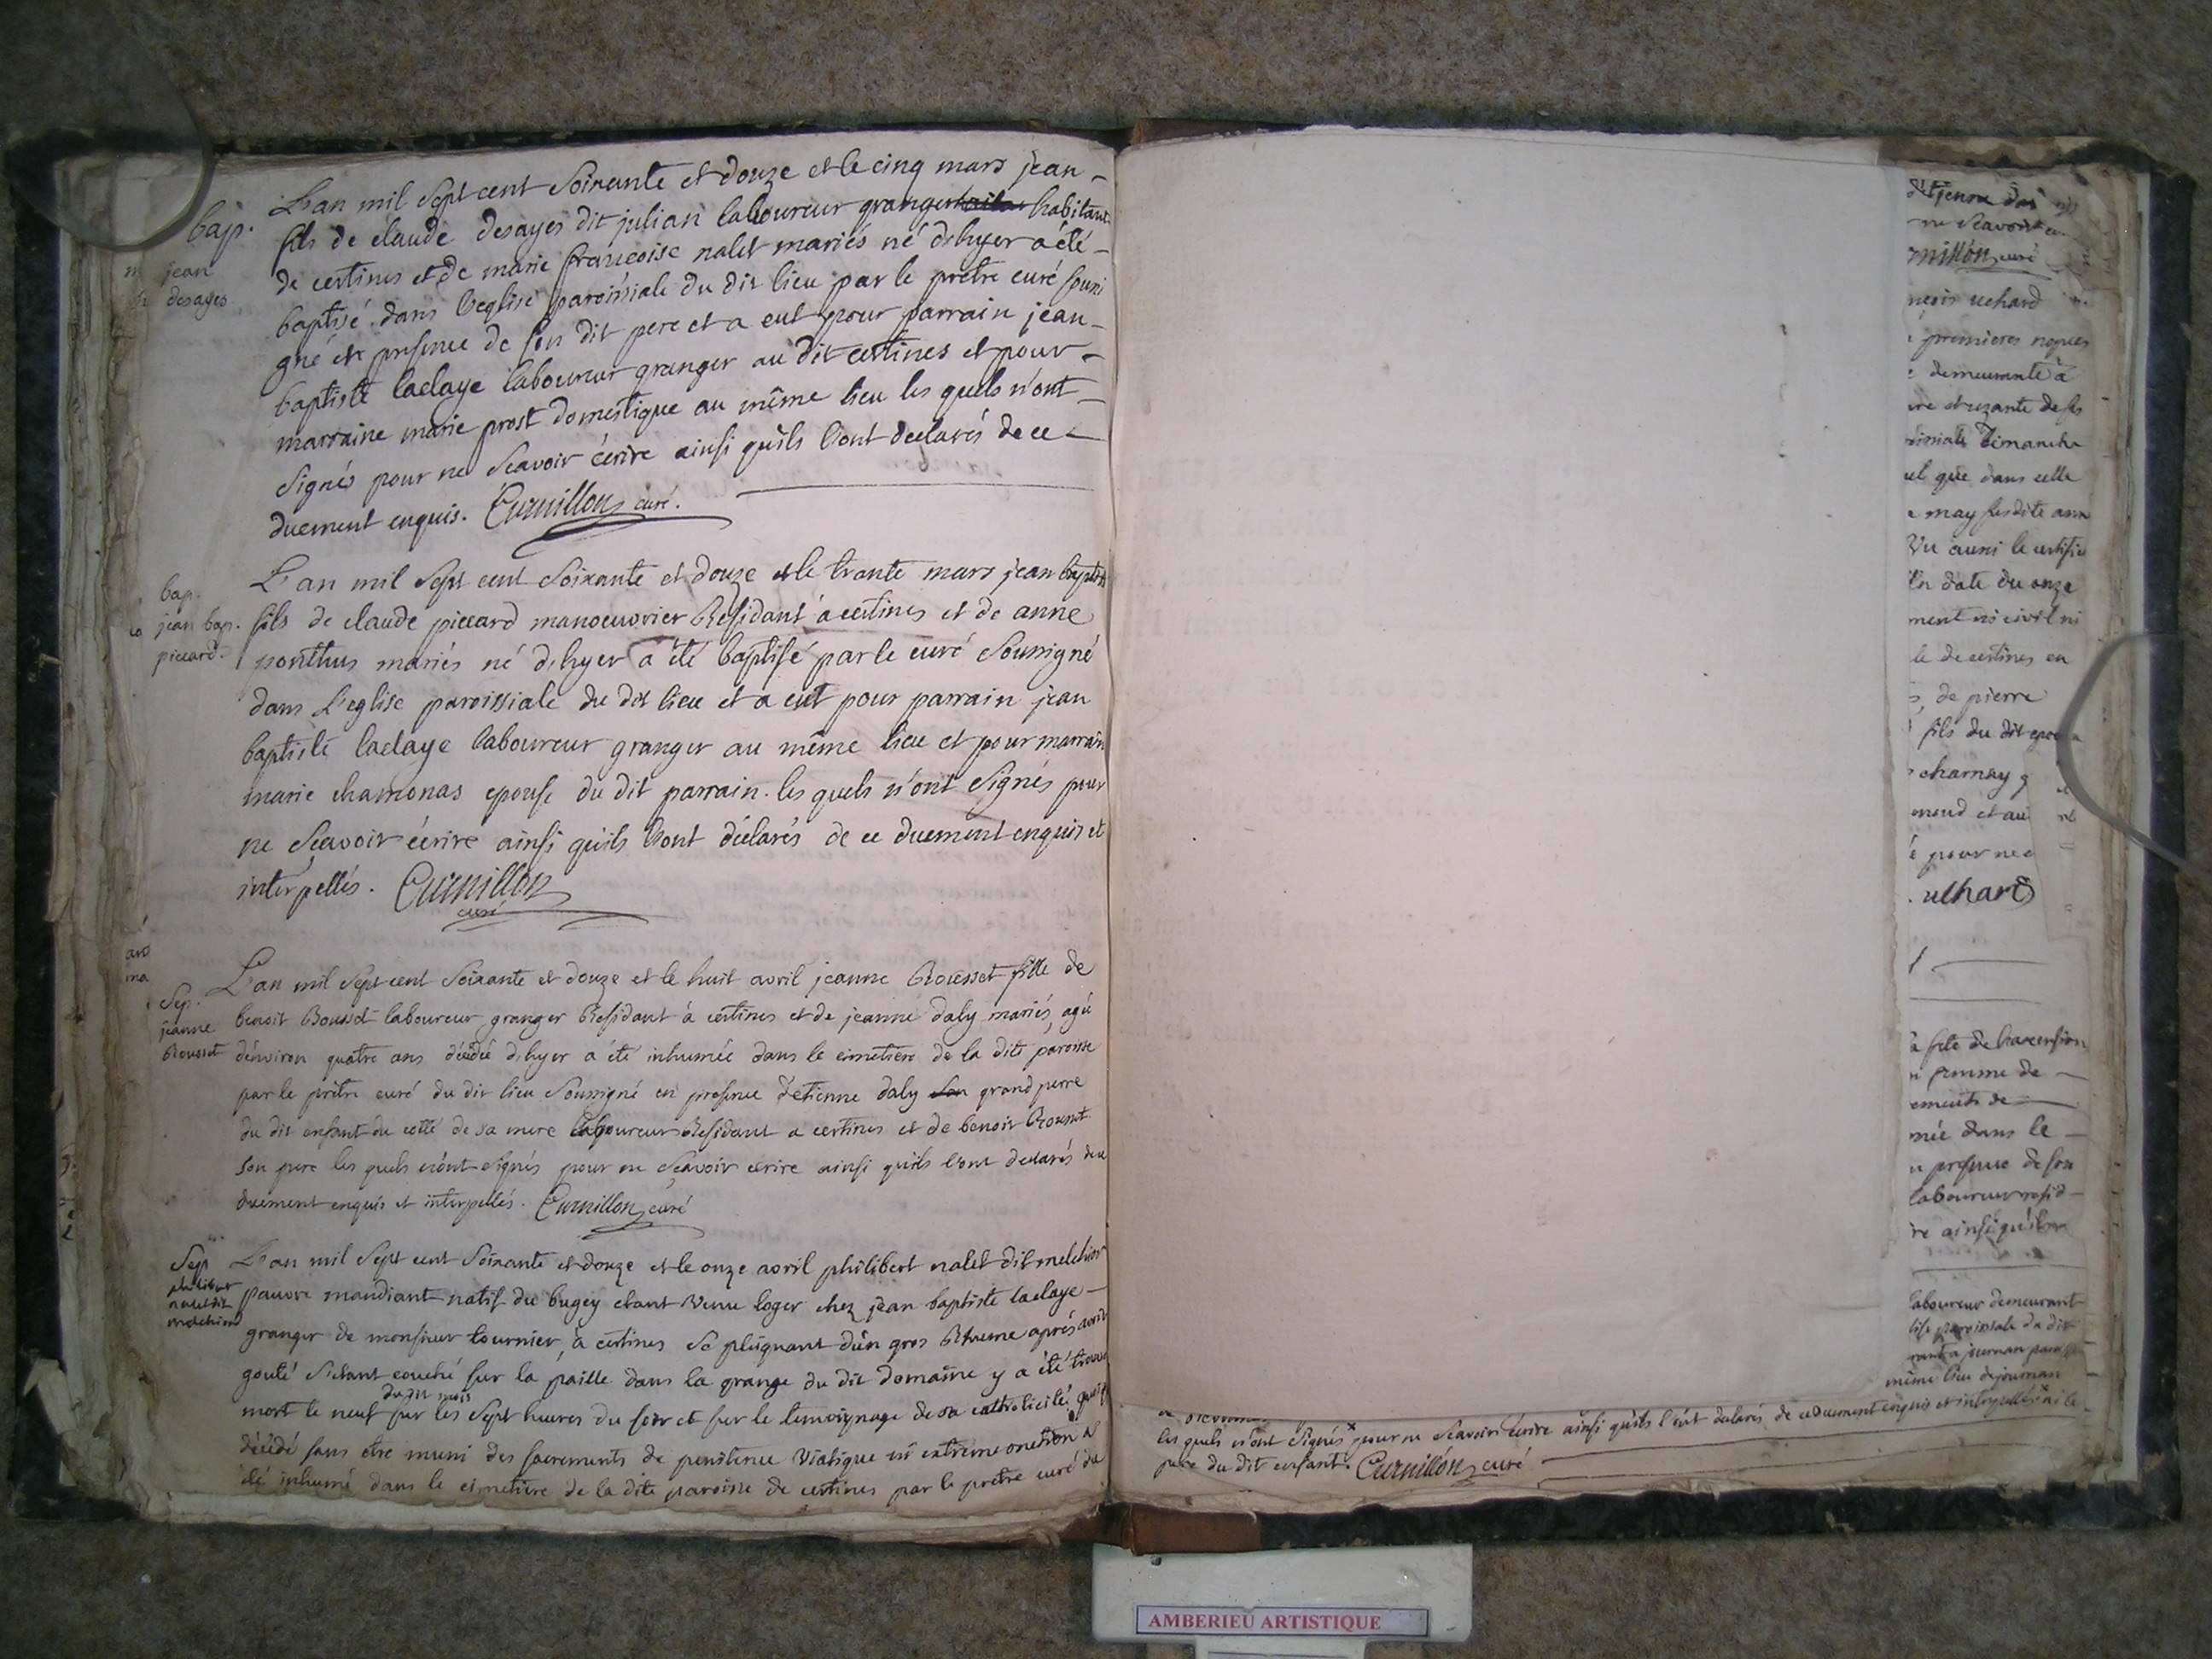 L'an mil sept cent soixante et douze et le cinq mars jean -
bap.
fils de claude desayes dit julian laboureur granger habitant
jean
de certines et de marie francoise nalet mariés né d'hyer a été -
desayes
baptisé dans l'eglise paroissiale du dit lieu par le pretre curé soussi
gné en presence de son dit pere et a eut pour parrain jean -
baptiste laclaye laboureur granger au dit certines et pour -
marraine marie prost domestique au même lieu les quels n'ont -
signés pour ne sçavoir écrire ainsi qu'ils l'ont declarés de ce -
duement enquis. Curnillon curé.
L'an mil sept cent soixante et douze et le trante mars jean baptiste
bap.
jean bap.
piccard.
fils de claude piccard manoeuvrier Residant a certines et de anne
ponthus mariés né d'hyer a été baptisé par le curé soussigné
dans l'eglise paroissiale du dit lieu et a eut pour parrain jean
baptiste laclaye laboureur granger au même lieu et pour marrain
marie chamonas epouse du dit parrain. les quels n'ont signés pour
ne sçavoir écrire ainsi qu'ils l'ont déclarés de ce duement enquis et
interpellés. Curnillon
curé
L'an mil sept cent soixante et douze et le huit avril jeanne Rousset fille de
Sep.
jeanne
Rousset
benoit Rousset laboureur granger Residant à certines et de jeanne daly mariés, agée
d'environ quatre ans décédée d'hyer a été inhumée dans le cimetiere de la dite paroisse
par le prêtre curé du dit lieu soussigné en presence d'etienne daly grand perre
du dit enfant du cotté de sa mere laboureur Residant a certines et de benoit Rousset
son pere les quels n'ont signés pour ne sçavoir ecrire ainsi qu'ils l'ont declarés de ce
duement enquis et interpellés. Curnillon curé
L'an mil sept cent soixante et douze et le onze avril philibert nalet dit melchior
Sep
philibert
nalet dit
melchior
pauvre mandiant natif du bugey etant venu loger chez jean baptiste laclaye -
granger de monsieur tournier, à certines se pleignant d'un gros Rhume aprés avoir
gouté s'etant couché sur la paille dans la grange du dit domaine y a été trouvé
du dit mois
mort le neuf sur les sept heures du soir et sur le temoignage de sa catholicité, quoi
décédé sans etre muni des sacrements de penitence viatique ni extreme onction a
été inhumé dans le cimetiere de la dite paroisse de certines par le pretre curé du
ne sçavoir
curé
premieres nopces
demeurante à
dimanche
que dans celle
may susdite ann
Vu aussi le certifi
En date du onze
ment ni civil ni
le de certines en
de pierre
fils du dit epou
charnay
pour ne
uchard
femme de -
ements de
mée dans le -
presence de son
laboureur resid -
re ainsi qu'ils
laboureur demeurant
même lieu de journan
les quels n'ont signés pour ne sçavoir écrire ainsi qu'ils l'ont declarés de ce duement enquis et interpellés
pere du dit enfant. Curnillon curé
AMBERIEU ARTISTIQUE